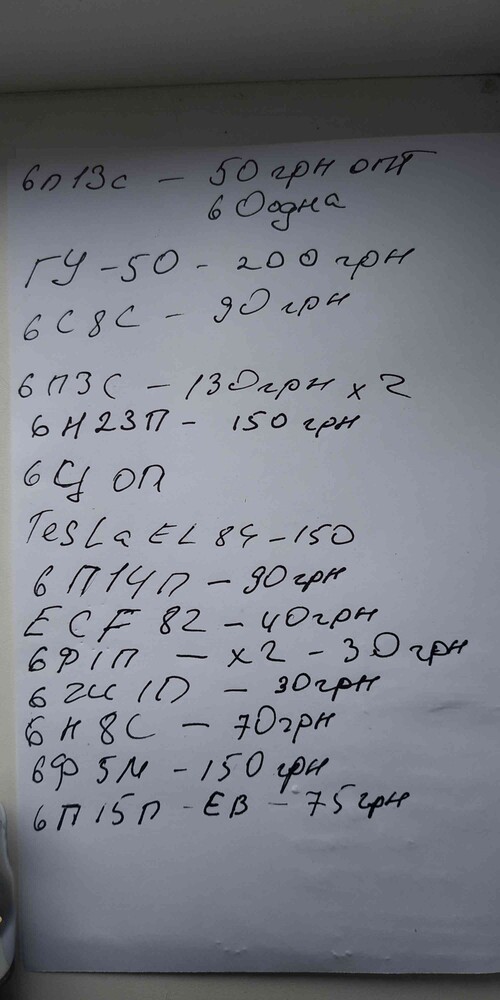 6п13с - 50 грн опт
60 одна
ГУ-50 - 200 грн
6С8С - 90 грн
6П3С - 130 грн х 2
6Н23П - 150 грн
6Ц ОП
Tesla EL 84 - 150
6П14П - 90 грн
ECF 82 - 40 грн
6Ф1П - х2 - 30 грн
6Ж1П - 30 грн
6Н8С - 70 грн
6Ф5М - 150 грн
6П15П - ЕВ - 75 грн